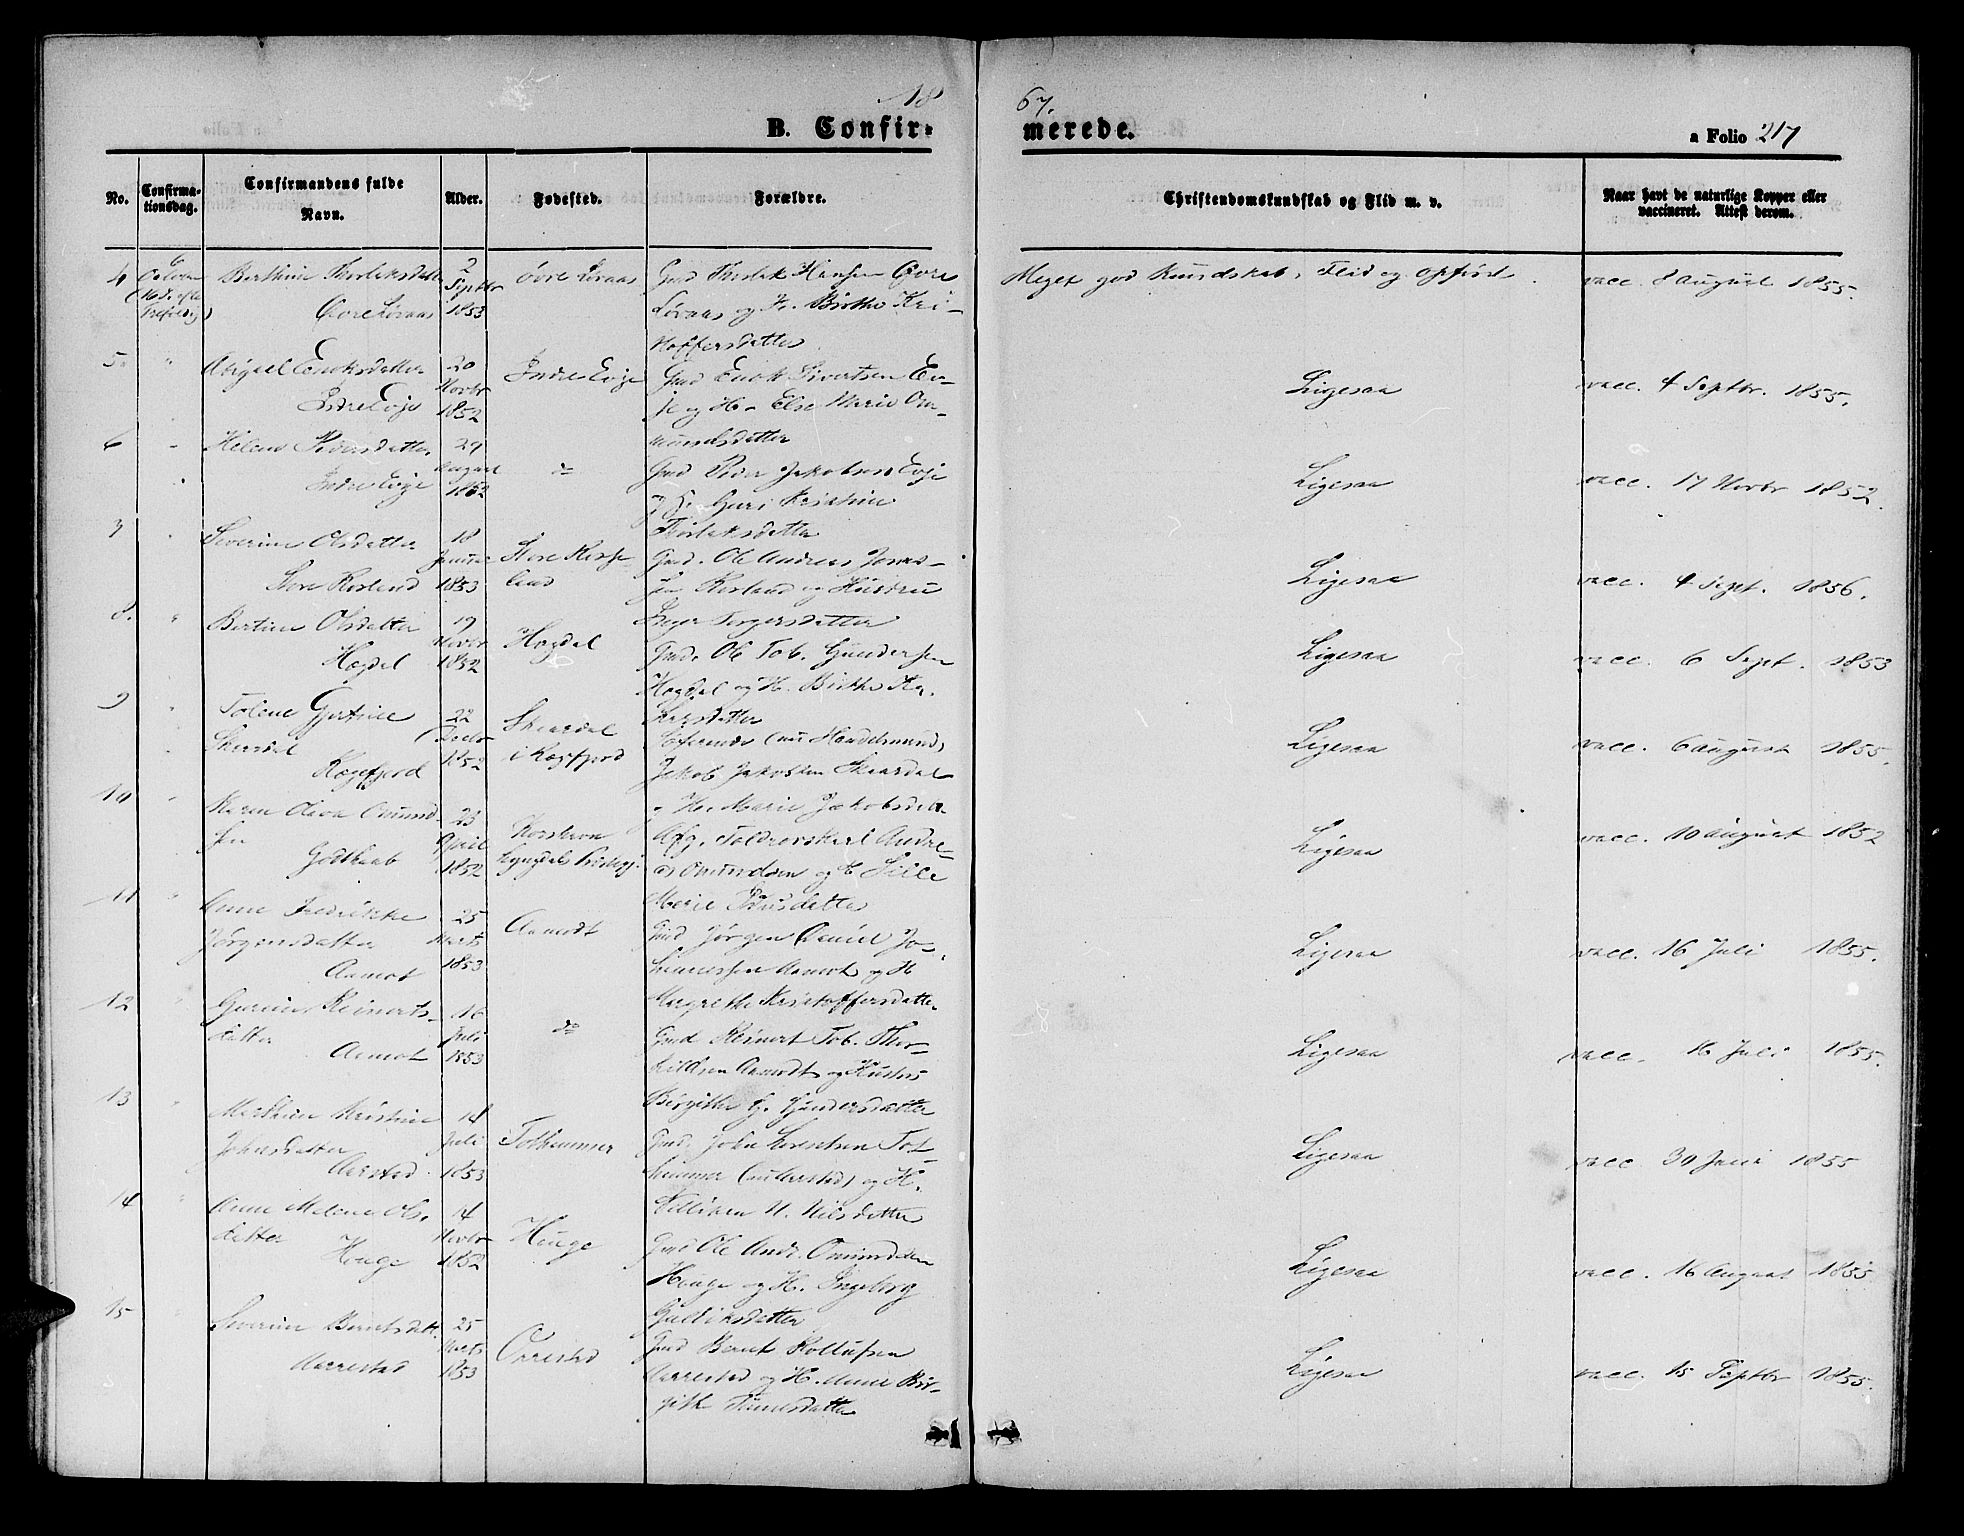 18
67.
B. Confir-
merede.
a Folio 217
No.
Confirma-
tionsdag.
Confirmandens fulde
Navn.
Alder.
Fødested.
Forældre.
Christendomskundskab og Flid m. v.
Naar havt de naturlige Kopper eller
vaccineret. Attest derom.
4
6
Octobr
Berthine Thorlaksdatter
Øvre Løvaas
2
Septbr
1853
Øvre Løvaas
Gmd Thorlak Hansen Øvre
Løvaas og H. Birthe Kri-
stoffersdatter
Meget god Kundskab, Flid og Opførsl
vacc. 8 August 1855.
5.
"
Abigael Enoksdatter
Indre Evje
20
Novbr
1852
Indre Evje
Gmd Enok Sivertsen Ev-
je og H. Else Marie Om-
mundsdatter
Ligesaa
vacc. 4 Septbr. 1855.
6
"
Helene Pedersdatter
Indre Evje
29
August
1852
do
Gmd Peder Jakobsen Evje
og H. Guri Kristine
Thorlaksdatter
Ligesaa
vacc. 17 Novbr 1852.
7
"
Severine Olsdatter
Store Rosland
18
Januar
1853
Gmd. Ole Andreas Jonas-
sen Rosland og Hustru
Inger Torgersdatter
Ligesaa
vacc. 4 Sept. 1856.
8.
"
Bertine Olsdatter
Hogdal
19
Novbr
1852
Hogdal
Gmd. Ole Tob. Gundersen
Hogdal og H. Birthe
Ligesaa
vacc. 6 Sept. 1853
9
"
Tolene Gjertine
Skaardal
Rægefjord
22
Decbr
1852
Skaardal
i Rægefjord
Søfarende (nu Handelsmand)
Jakob Jakobsen Skaardal
og H. Marie Jakobsdtr.
Ligesaa
vacc. 6 August 1855.
10
"
Karen Olava Omund-
sen
Godthaab
23
April
1852
Korshavn
Lyngdals Præstegj.
Afg. Toldrorskarl Andre-
as Omundsen og H. Sille
Marie
Ligesaa
vacc. 10 August 1852
11
"
Anne Fredrikke
Jørgensdatter
Aamot
25
Marts
1853
Aamodt
Gmd Jørgen Daniel
Aamot og H
Margrethe Kristoffersdatter
Ligesaa
vacc. 16 Juli 1855.
12
"
Gurine Reinerts-
datter
Aamot
16
Juli
1853
do
Gmd Reinert Tob. Thor-
kildsen Aamodt og Hustru
Birgitte G. Gundersdatter
Ligesaa
vacc. 16 Juli 1855.
13
"
Marthine Kristine
Johnsdatter
Aarstad.
14
Juli
1853
Tothammer
Gmd. John Lorentsen Tot-
hammer (Aarstad) og H.
N. Nilsdatter
Ligesaa
vacc 30 Juni 1855
14
"
Anne Malene Ols-
datter
Houge
14
Novbr
1852
Houge
Gmd Ole Andr. Omundsen
Houge og H. Ingeborg
Gulleiksdatter
Ligesaa
vacc. 16 August 1855
15
"
Severine Berntsdatt.
Aarrestad
25
Marts
1853
Orrestad
Gmd Bernt Rollufsen
Aarrestad og H. Anne Bir-
gith Tønnesdatter
Ligesaa
vacc. 15 Septbr 1855.